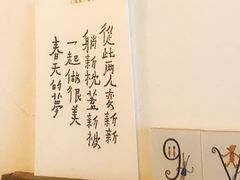 從此兩人蛮新新
躺新枕蓋新被
一起做很美
春天的夢